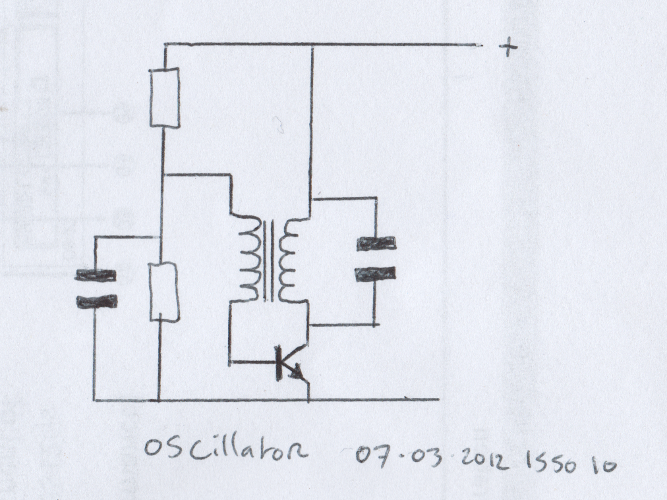 +
OSCillator 07.03.2012 1550 10